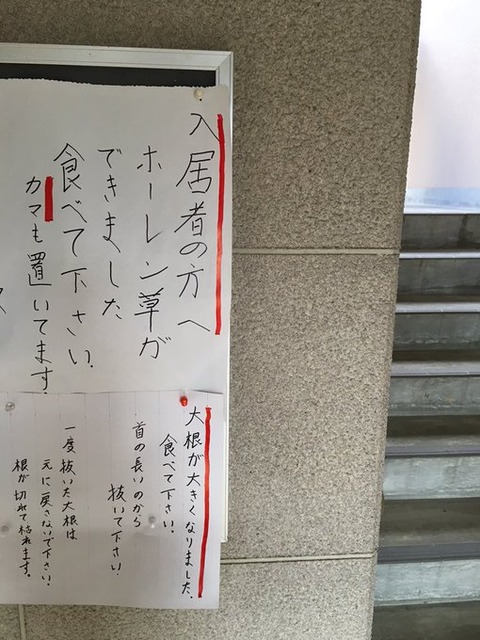 入居者の方へ
ホーレン草が
できました
食べて下さい.
カマも置いてます.
大根が大きくなりました.
食べて下さい.
首の長いのから
抜いて下さい.
一度抜いた大根は
元に戻さないで下さい.
根が切れて枯れます.